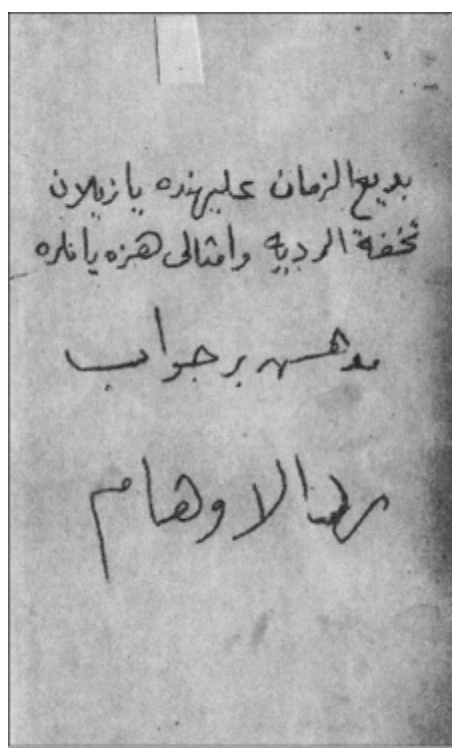 بديع الزمان عليهنده يازيلان
تحفة الرديه وامثالى هزه يانلره
مدهش بر جواب
رد الاوهام